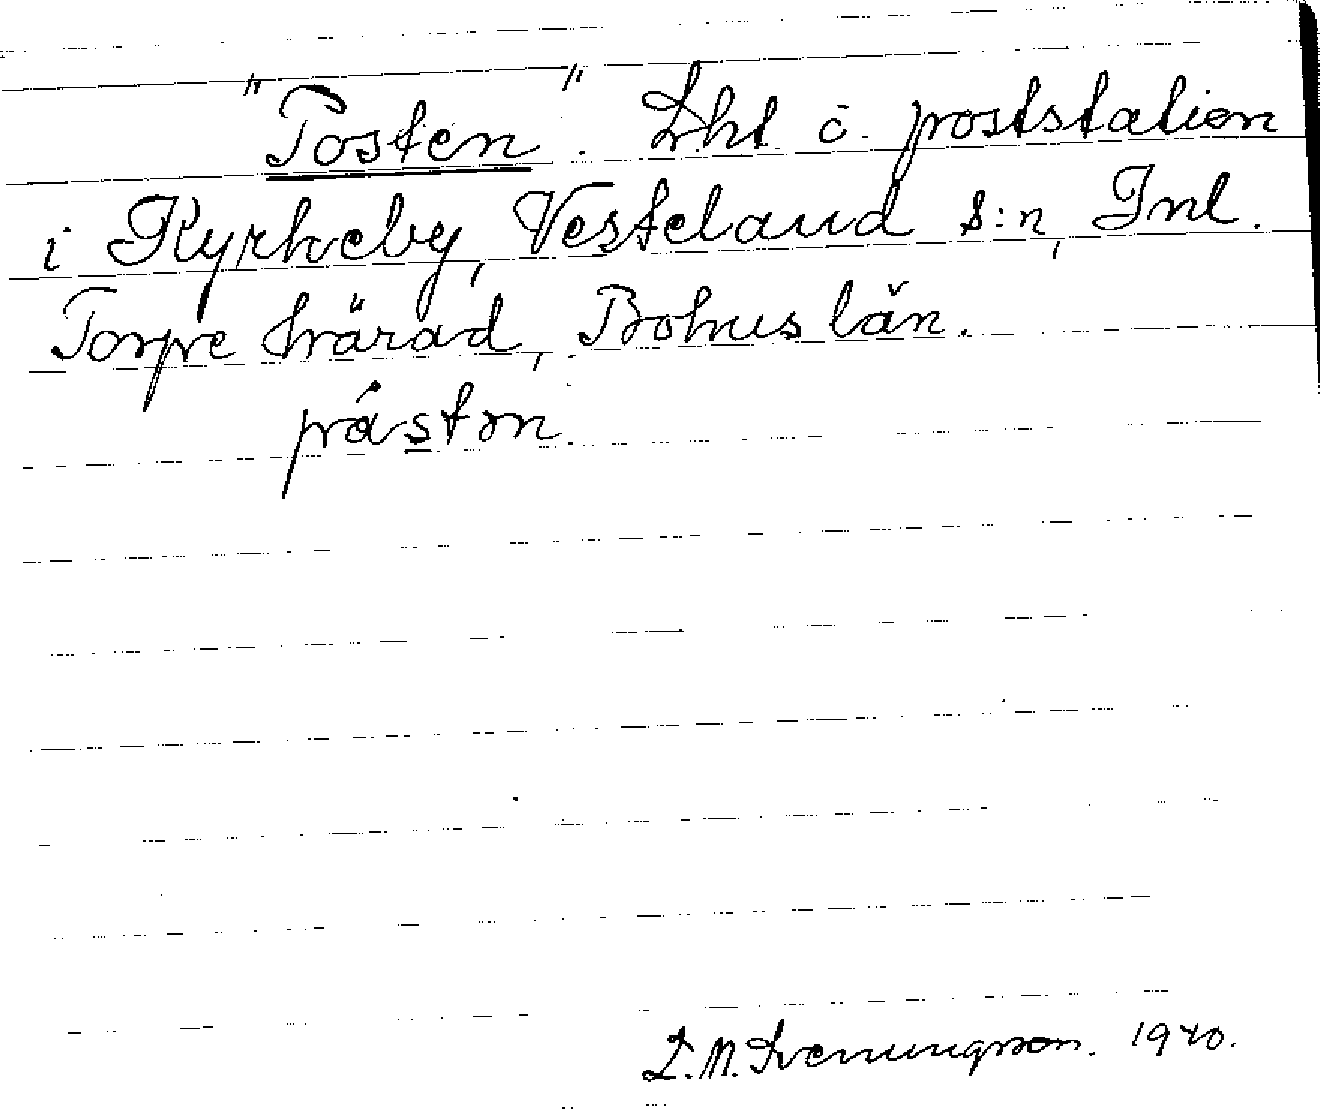 "Posten". Lht o. poststation
i Kyrkeby, Vesteland s:n, Inl.
Torpe härad, Bohus län.
påstɔn.
L. M. Svenungsson. 1940.